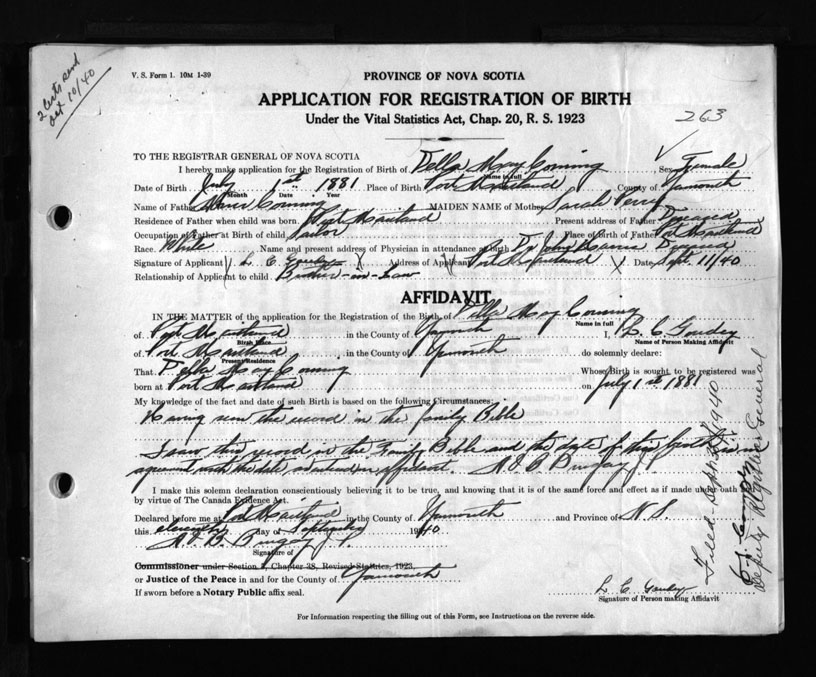 2 Certs send
Oct 10/40
V. S. Form 1. 10M 1-39
PROVINCE OF NOVA SCOTIA
APPLICATION FOR REGISTRATION OF BIRTH
Under the Vital Statistics Act, Chap. 20, R. S. 1923
263
TO THE REGISTRAR GENERAL OF NOVA SCOTIA
I hereby make application for the Registration of Birth of Della May Corning Sex Female
Name in full
Date of Birth July 1st 1881 Place of Birth Port Maitland County of Yarmouth
Month Date Year
Name of Father Corning MAIDEN NAME of Mother Sarah Perry
Residence of Father when child was born Port Maitland Present address of Father Deceased
Occupation of Father at Birth of child Sailor Place of Birth of Father Port Maitland
Race White Name and present address of Physician in attendance at birth Dr John Deceased
Signature of Applicant L. C. Goudey Address of Applicant Port Maitland Date Sept. 11/40
Relationship of Applicant to child Brother-in-Law
AFFIDAVIT
IN THE MATTER of the application for the Registration of the Birth of Della May Corning
Name in full
of Port Maitland in the County of Yarmouth I, L. C. Goudey
Birth Place Name of Person Making Affidavit
of Port Maitland, in the County of Yarmouth do solemnly declare:
Present Residence
That Della May Corning Whose Birth is sought to be registered was
born at Port Maitland on July 1st 1881
My knowledge of the fact and date of such Birth is based on the following Circumstances:
Having seen the record in the family Bible
I saw this record in the Family Bible and the date of this birth is in
agreement with the date as stated in affidavit.
I make this solemn declaration conscientiously believing it to be true, and knowing that it is of the same force and effect as if made under oath
by virtue of The Canada Evidence Act.
Declared before me at Port Maitland in the County of Yarmouth and Province of N.S.
this eleventh day of September 1940
Signature of
Commissioner under Section 2, Chapter 38, Revised Statutes, 1923,
or Justice of the Peace in and for the County of Yarmouth
If sworn before a Notary Public affix seal.
L. C. Goudey
Signature of Person making Affidavit
For Information respecting the filling out of this Form, see Instructions on the reverse side.
Filed 1940
Deputy Registrar General